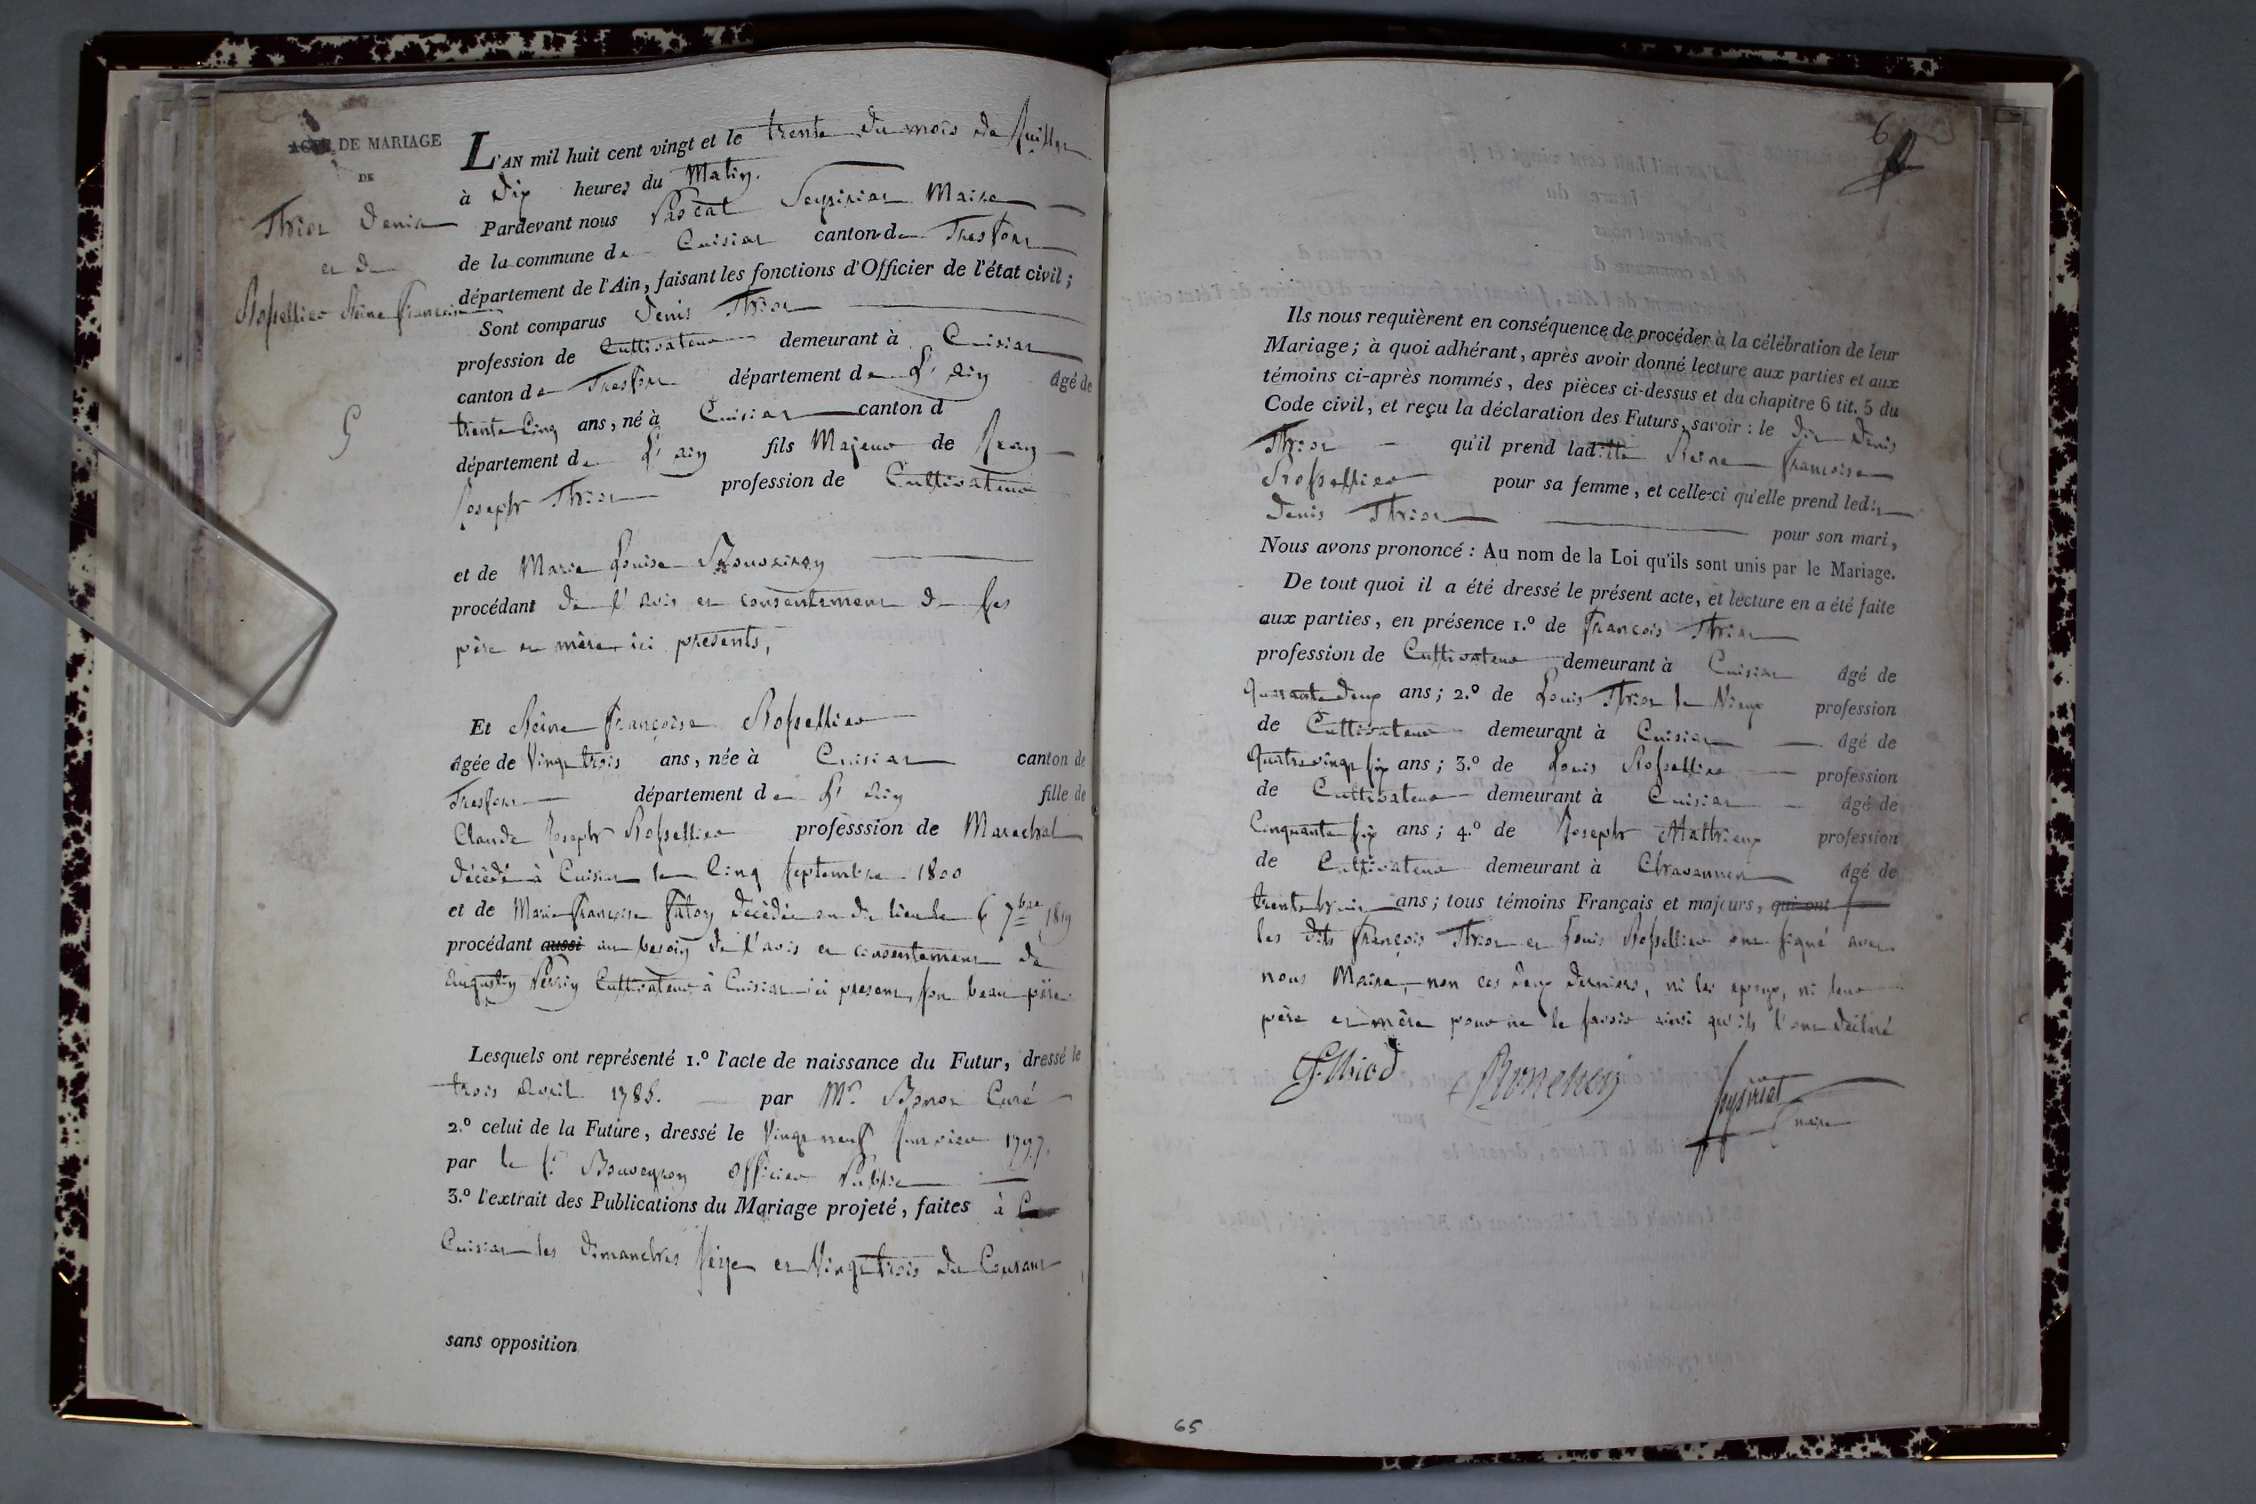 ACTE DE MARIAGE
DE
Thiot Denis
et de
Rossellier Reine Françoise
5
L'AN mil huit cent vingt et le trente du mois de Juillet
à dix heures du Matin.
Pardevant nous Pascal Seyssiriat Maire
de la commune de Cuisiat canton de Treffort
département de l'Ain, faisant les fonctions d'Officier de l'état civil;
Sont comparus Denis Thiot
profession de Cultivateur demeurant à Cuisiat
canton de Treffort département de L'ain âgé de
trente Cinq ans, né à Cuisiat canton d
département de L'ain fils Majeur de Jean
Joseph Thiot profession de Cultivateur
et de Marie Louise
procédant de l'avis et consentement de ses
père et mère ici présents,
Et Reine Françoise Rossellier
âgée de Vingt trois ans, née à Cuisiat canton de
Treffort département de L'ain fille de
Claude Joseph Rossellier professsion de Marechal
décédé à Cuisiat le Cinq Septembre 1800
et de Marie Françoise décédée au dit lieu le 6 7bre 1819
procédant aussi au besoin de l'avis et consentement de
Augustin Perrin Cultivateur à Cuisiat ici présent, son beau père
Lesquels ont représenté 1.º l'acte de naissance du Futur, dressé le
trois avril 1785. par Mr. Curé
2.º celui de la Future, dressé le Vingt neuf Janvier 1797.
par le Sr. Bouveyron Officier Public
3.º l'extrait des Publications du Mariage projeté, faites à
Cuisiat les dimanches Seize et Vingt trois du Courant
sans opposition
6
Ils nous requièrent en conséquence de procéder à la célébration de leur
Mariage; à quoi adhérant, après avoir donné lecture aux parties et aux
témoins ci-après nommés, des pièces ci-dessus et du chapitre 6 tit. 5 du
Code civil, et reçu la déclaration des Futurs, savoir: le dit Denis
Thiot qu'il prend laditte Reine Françoise
Rossellier pour sa femme, et celle-ci qu'elle prend ledit
Denis Thiot pour son mari,
Nous avons prononcé: Au nom de la Loi qu'ils sont unis par le Mariage.
De tout quoi il a été dressé le présent acte, et lecture en a été faite
aux parties, en présence 1.º de François Thiot
profession de Cultivateur demeurant à Cuisiat âgé de
Quarante deux ans; 2.º de Louis Thiot le Vieux profession
de Cultivateur demeurant à Cuisiat âgé de
Quatre vingt six ans; 3.º de Louis Rossellier profession
de Cultivateur demeurant à Cuisiat âgé de
Cinquante six ans; 4.º de Joseph Mathieux profession
de Cultivateur demeurant à Chavannes âgé de
trente huit ans; tous témoins Français et majeurs, qui ont
les dits François Thiot et Louis Rossellier ont signé avec
nous Maire, non ces deux derniers, ni les époux, ni leur
père et mère pour ne le savoir ainsi qu'ils l'ont déclaré
f. thiod
maire
65